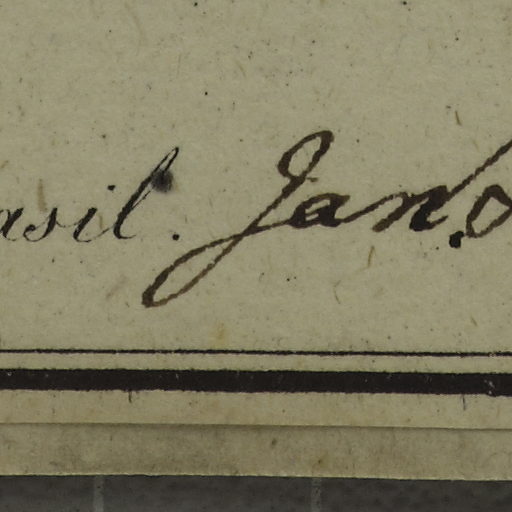 asil. Jan.